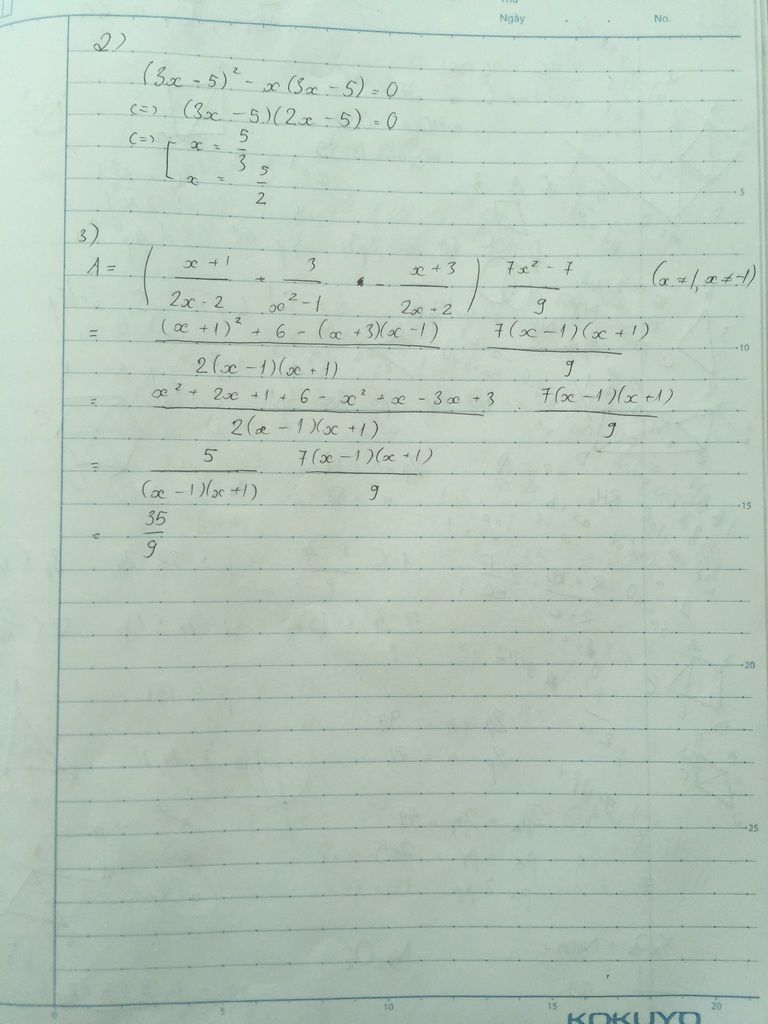 Thứ
Ngày . . No.
2)
(3x - 5)² - x(3x - 5) = 0
<=> (3x - 5)(2x - 5) = 0
<=> [ x = 5/3
x = 5/2
5
3)
A = ( (x + 1)/(2x - 2) + 3/(x² - 1) - (x + 3)/(2x + 2) ) (7x² - 7)/9 (x ≠ 1, x ≠ -1)
= ((x + 1)² + 6 - (x + 3)(x - 1))/(2(x - 1)(x + 1)) 7(x - 1)(x + 1)/9
10
= (x² + 2x + 1 + 6 - x² + x - 3x + 3)/(2(x - 1)(x + 1)) . 7(x - 1)(x + 1)/9
= 5/((x - 1)(x + 1)) 7(x - 1)(x + 1)/9
15
= 35/9
20
25
0 5 10 15 20
KOKUYO